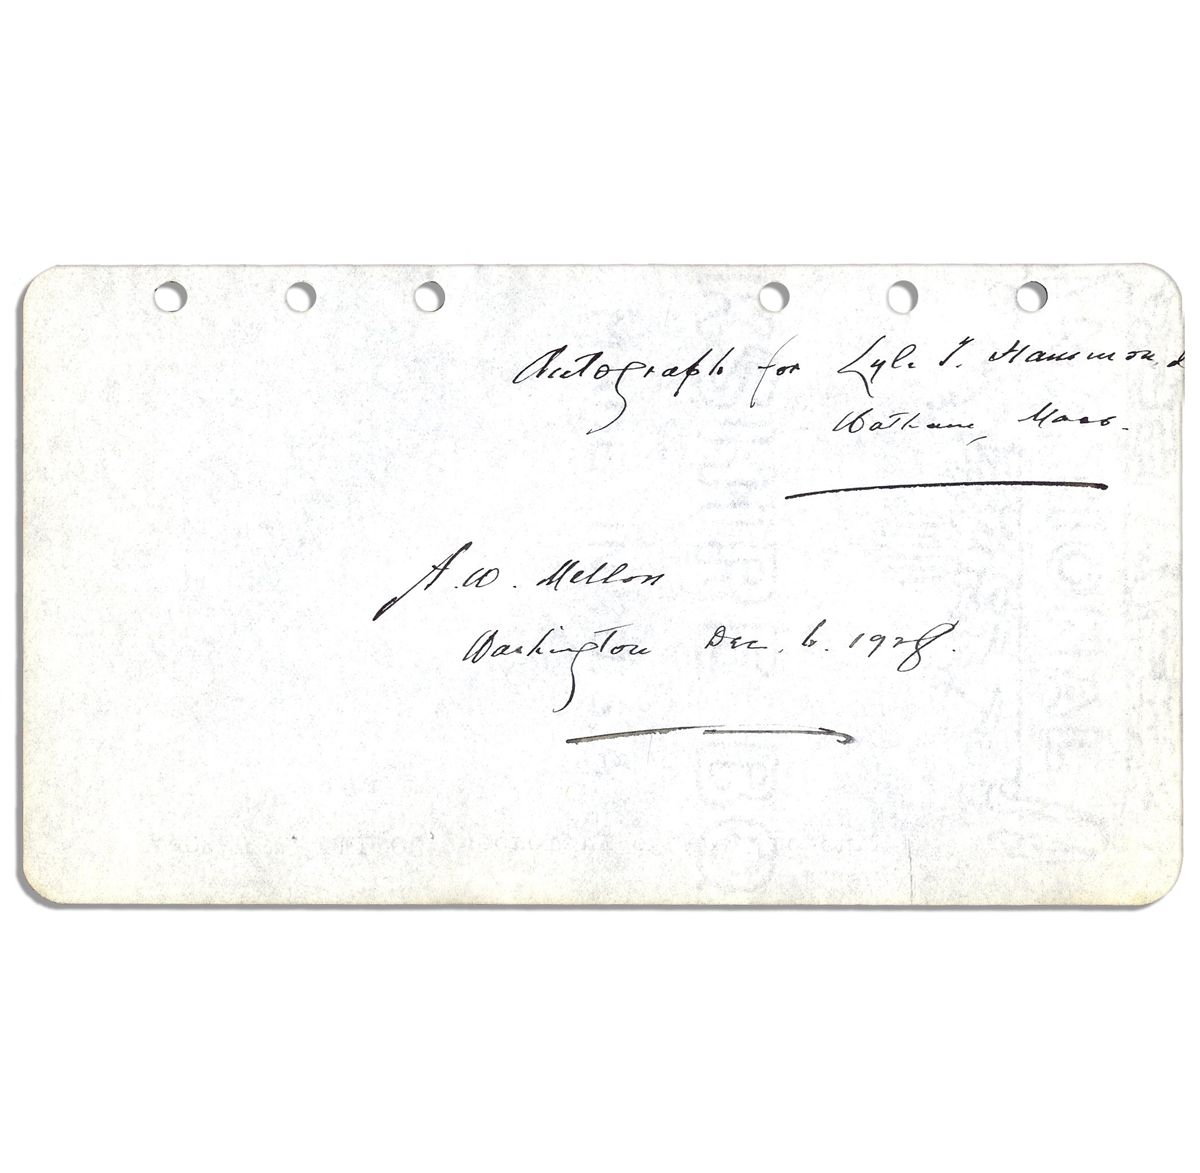 Autograph for Lyle T. Hammond
Waltham, Mass.
A. W. Mellon
Washington Dec. 6. 1928.